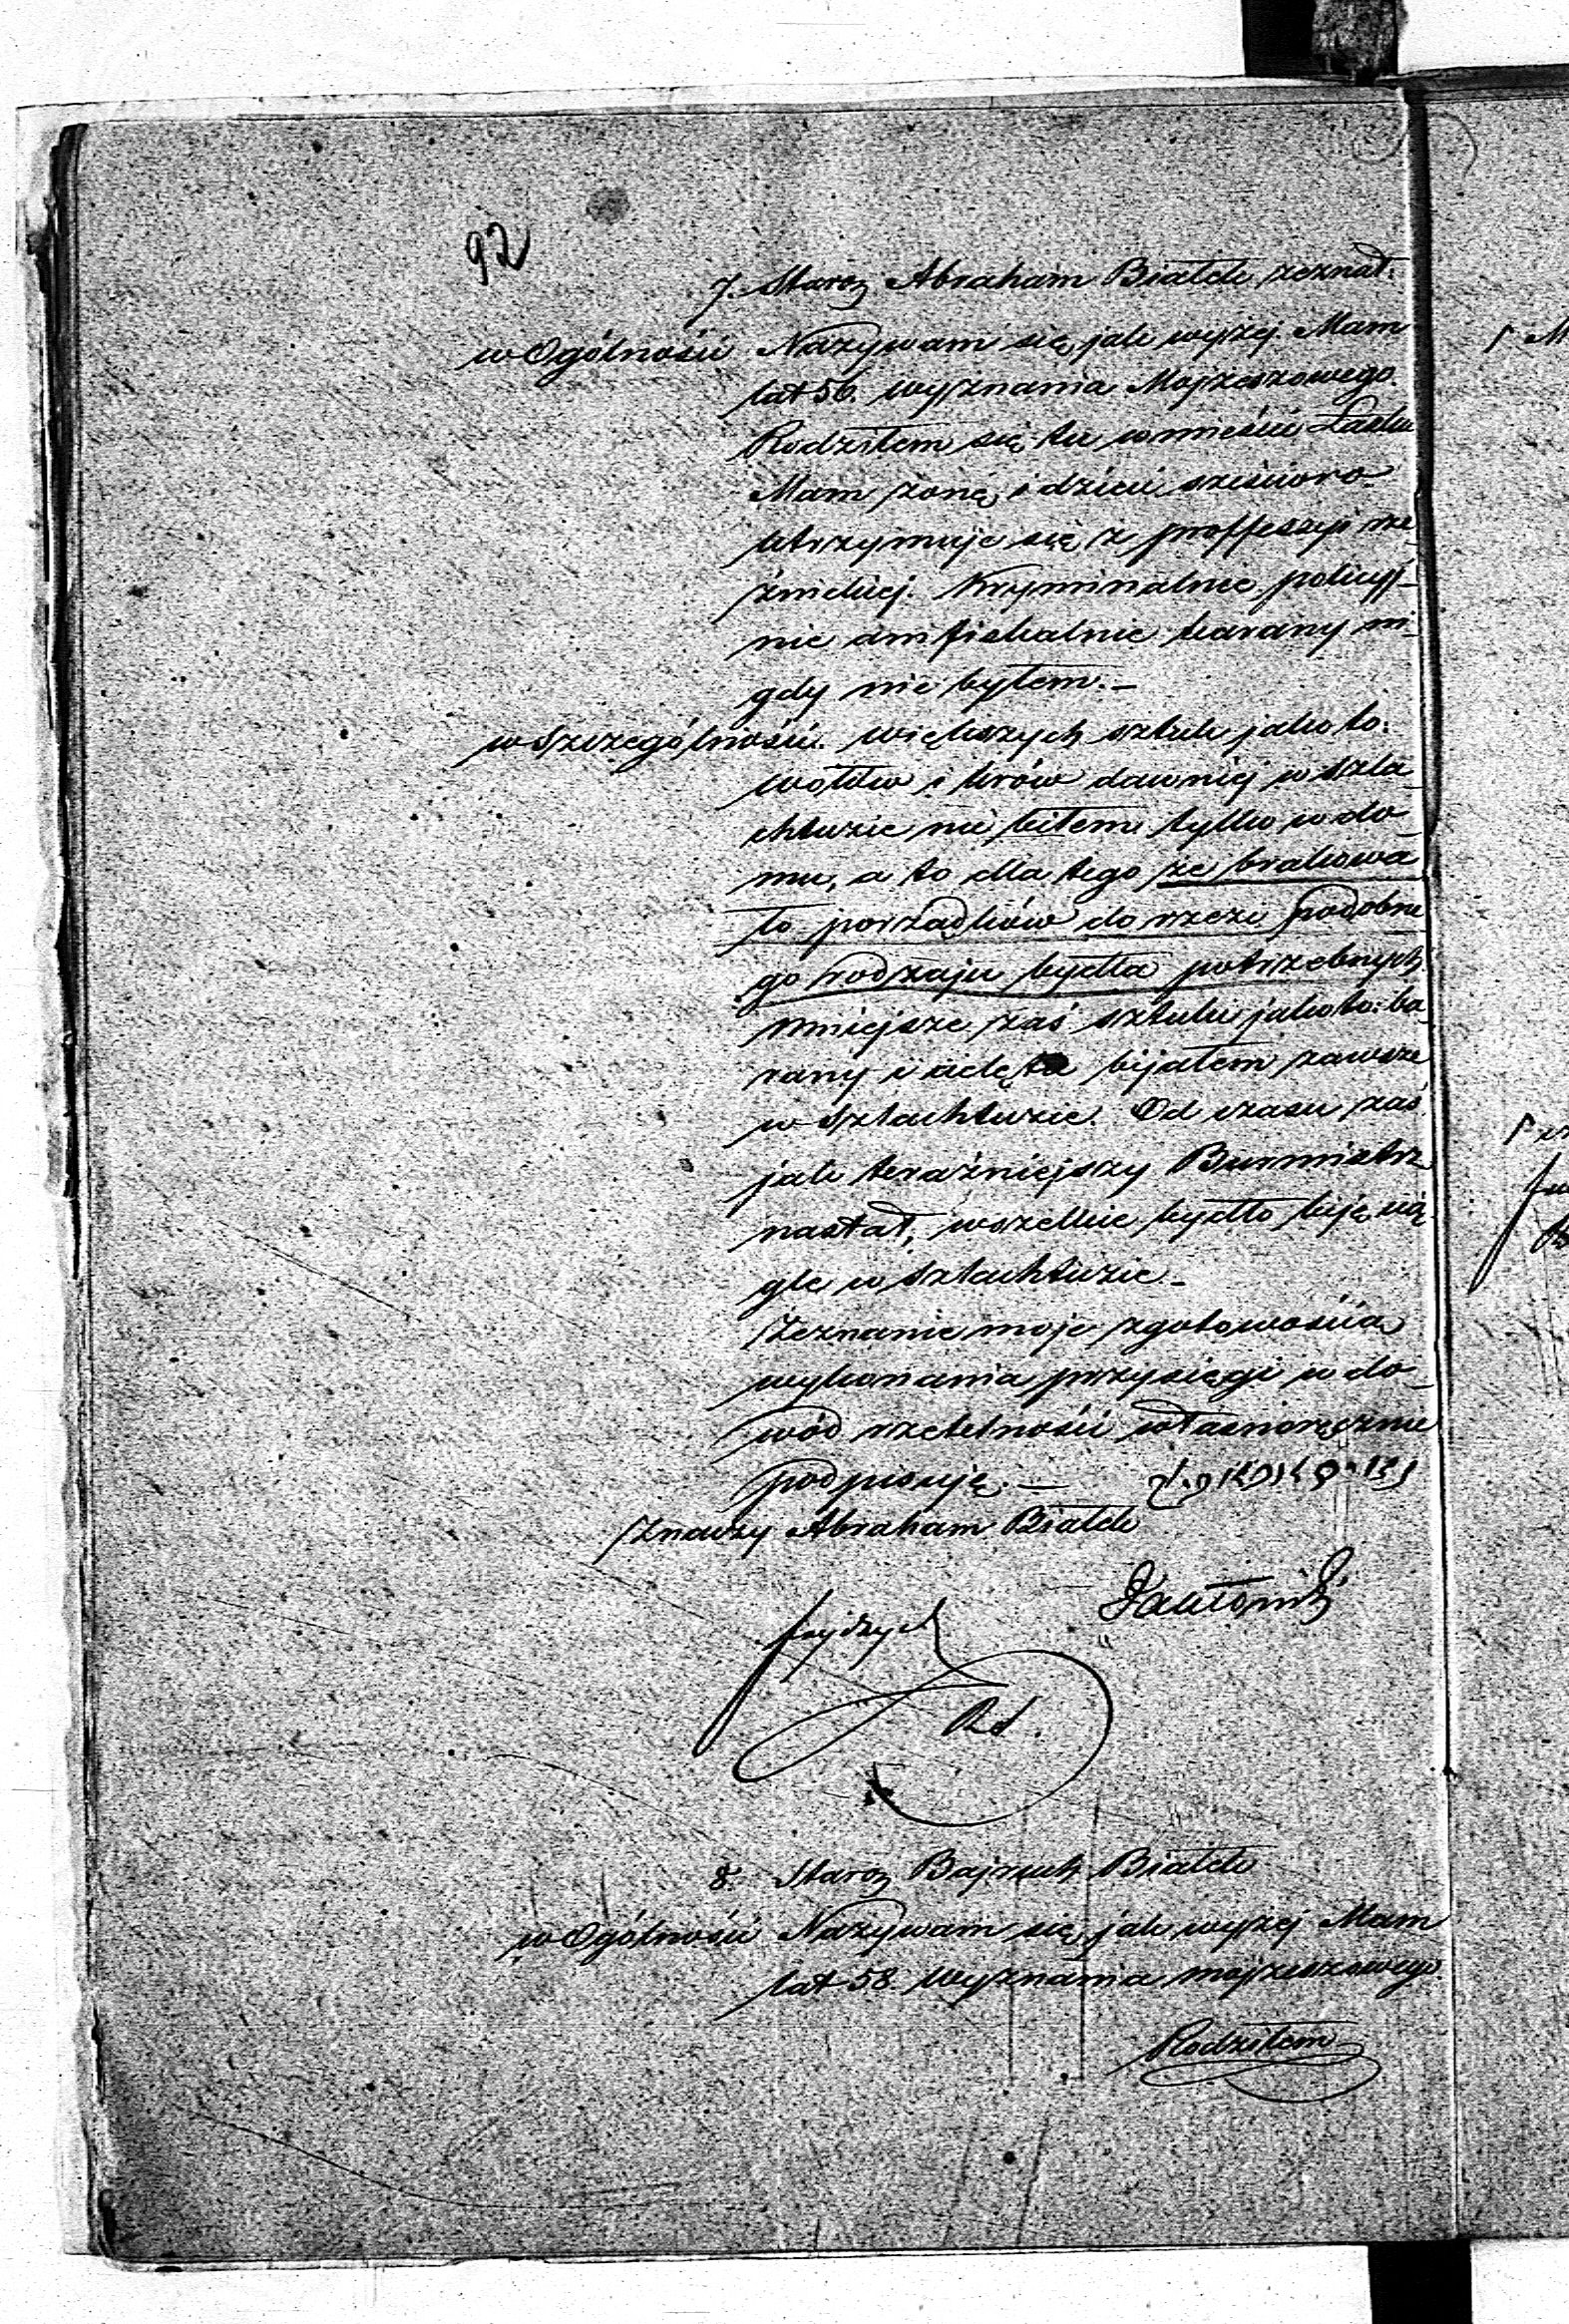 92
7. Staroz Abraham Białek zeznał:
w Ogólności Nazywam się jak wyżej. Mam
lat 56. wyznania Mojżeszowego.
Rodziłem się tu w mieście Łasku
Mam żonę i dzieci sześcioro
utrzymuje się z proffessyi rze_
źnickiej. Kryminalnie policyj_
nie ani fiskalnie karany ni_
gdy nie byłem._
w Szczególności. większych sztuk jako to:
wołów i krów dawniej w szla_
chtuzie nie biłem tylko w do_
mu, a to dla tego że brakowa_
ło porządków do rzezi podobne_
go rodzaju bydła potrzebnych.
mniejsze zaś sztuki jako to: ba_
rany i cielęta bijałem zawsze
w szlachtuzie. Od czasu zaś
jak teraźniejszy Burmistrz
nastał, wszelkie bydło biję cią_
gle w szlachtuzie_
Zeznanie moje z gotowością
wykonania przysięgi w do_
wód rzetelności własnoręcznie
podpisuję._
Znaczy Abraham Białek
8. Staroz Bajruch Białek
w Ogólności Nazywam się jak wyżej Mam
lat 58. Wyznania mojżeszowego.
Rodziłem